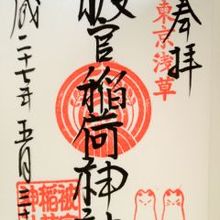 奉拝
東京浅草
被官稲荷神社
成二十七年五月三十